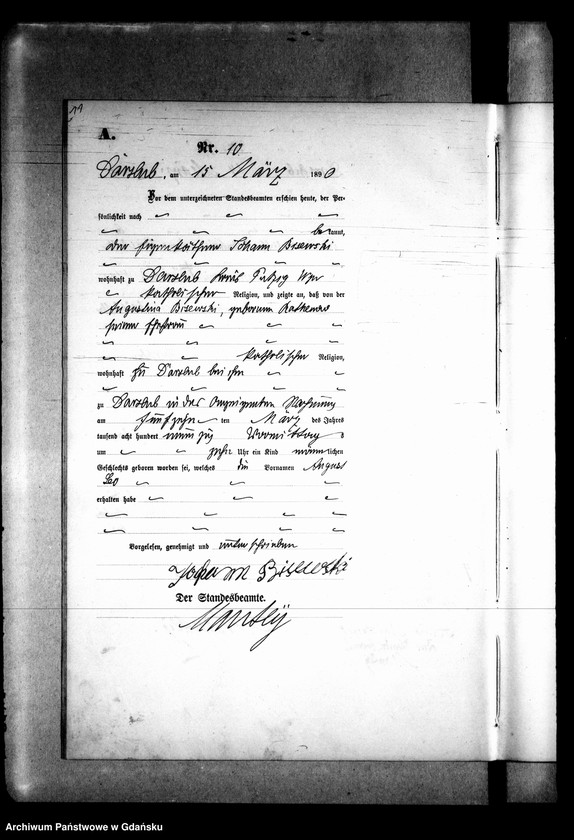 A.
Nr. 10
Darslub, am 15 März 1890
Vor dem unterzeichneten Standesbeamten erschien heute, der Per-
sönlichkeit nach
bekannt,
der Eigenkäthner Johann
wohnhaft zu Darslub Kreis Putzig Wpr
katholischer Religion, und zeigte an, daß von der
Augustina, geborenen
seiner Ehefrau
katholischer Religion,
wohnhaft zu Darslub bei ihm
zu Darslub in der Wohnung
am fünfzehn ten März des Jahres
tausend acht hundert neunzig Vormittag s
um zehn Uhr ein Kind männlichen
Geschlechts geboren worden sei, welches die Vornamen August
Leo
erhalten habe
Vorgelesen, genehmigt und unterschrieben
Johann
Der Standesbeamte.
Archiwum Państwowe w Gdańsku